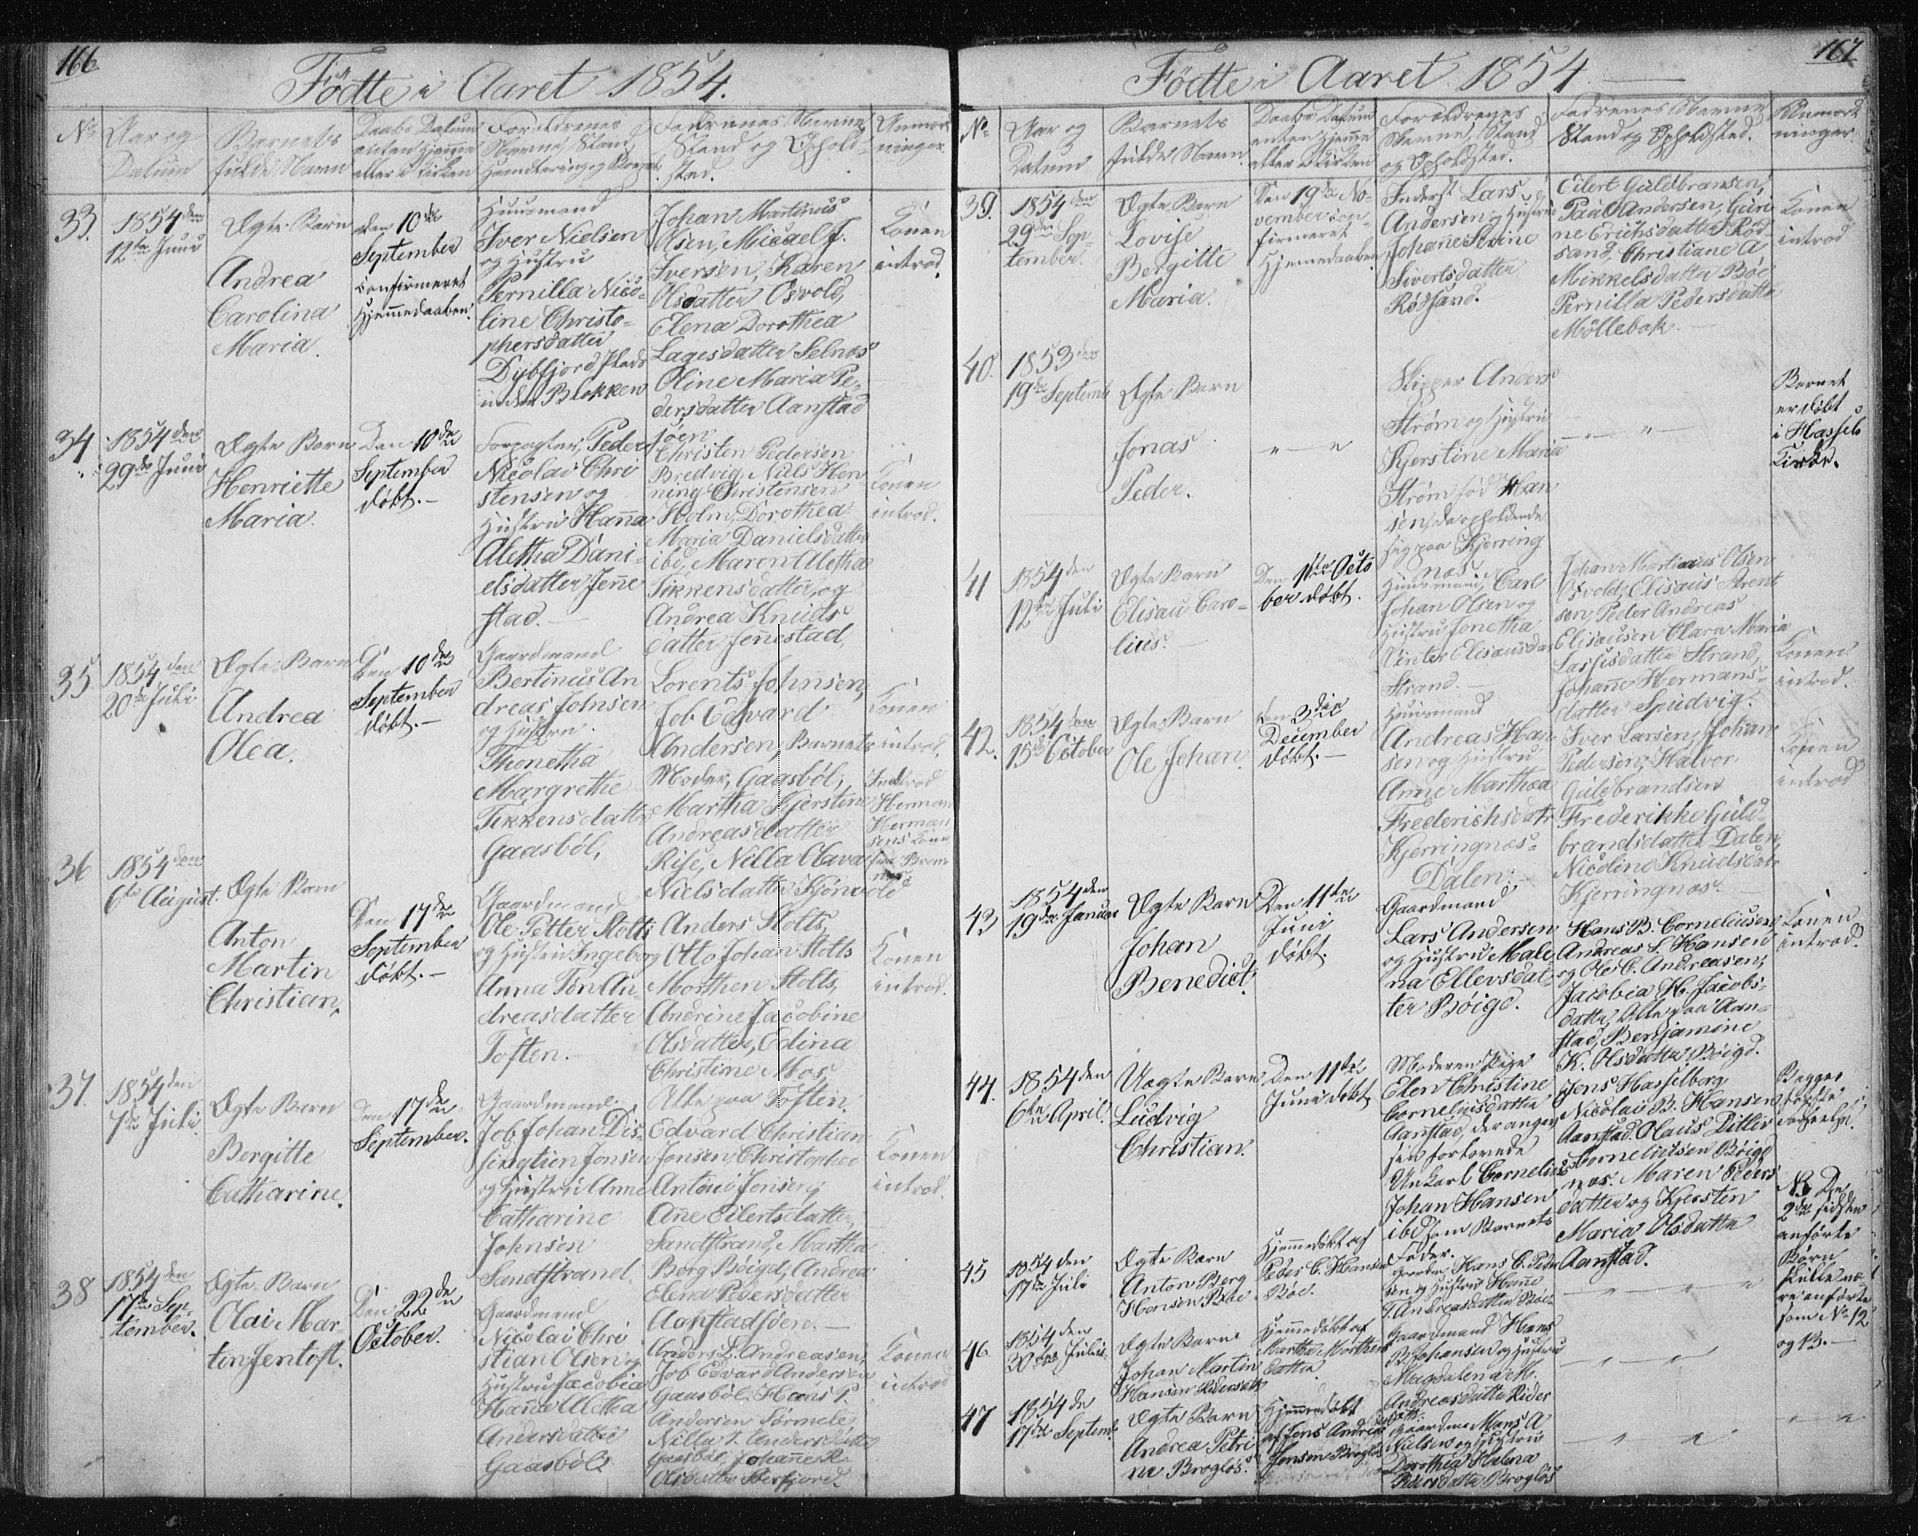 166
Födte i Aaret 1854.
No
Aar og
Datum
Barnets
fulde Navn
Daabs Datum
enten hjemme
eller i Kirken
Forældrenes
Navne, Stand
Fadrenes Navne
Stand og Ophold-
sted.
Anmærk-
ninger.
33.
1854 den
12te Juni
Ægte Barn
Andrea
Carolina
Maria.
den 10de
September
confirmeret
Hjemmedaaben.
Huusmand
Iver Nielsen
og Hustru
Pernilla Nico-
line Christo-
phersdatter
Dybfjord Plads
under Blokken
Johan Martinus
Olsen, Michael J.
Iversen, Karen
Olsdatter Osvold,
Elena Dorothea
Lagesdatter Selnæs
Oline Maria Pe-
dersdatter Aanstad
sjøen
Konen
introd.
34.
1854 den
29de Juni
Ægte Barn
Henriette
Maria.
Den 10de
September
døbt.—
Forpagter, Peder
Nicolai Chri
stensen og
Hustru Hanna
Aletha Dani-
elsdatter Jenne
stad.—
Christen Pedersen
Bredvig, Nils Hen
ning Christensen
Holm, Dorothea
Maria Danielsdatter
ibd, Maren Aletha
Sikkensdatter, og
Andrea Knuds
datter Jennestad,
Konen
introd.
35
1854 den
20de Juli
Ægte Barn
Andrea
Olea.
Den 10de
September
døbt.—
Gaardmand
Bertinus An
dreas Johnsen
og Hustru
Thonetha
Margrethe
Tekkensdatter
Gaasböl,
Lorents Johnsen,
Job Edvard
Andersen, Barnets
Moder, Gaasböl,
Martha Kjerstine
Andreasdatter
Rise, Nilla Olava
Nielsdatter
Konen
introd.
Introd
Herman
Herman
sens Kone
36
1854 den
6te August.
Ægte Barn
Anton
Martin
Christian.
Den 17de
September
døbt.—
Gaardmand
Ole Petter Stolts
og Hustru Ingeborg
Anna Ton An-
dreasdatter
Toften.—
Anders Stolts,
Otto Johan Stolts
Morthen Stolts,
Andrine Jacobine
Olsdatter, Edina
Christine Moe
Alle paa Toften.
Konen
introd.
37.
1854 den
7de Juli.
Ægte Barn
Bergitte
Catharine.
den 17de
September.
Gaardmand
Job Johan Dis-
Jonsen
og Hustru Anne
Catharine
Johnsen
Sandstrand.
Edvard Christian
Jonsen Christopher
Antoni Jensen,
Ane Eilertsdatter
Sandstrand, Martha
Borg Böigd, Andrea
Elena Pedersdatter
Aanstadsjöen.—
Konen
introd.
38
1854 den
17de Sep-
tember.
Ægte Barn
Olai Mar
tin Jentoft.
Den 22de
October.
Gaardmand
Nicolai Chri
stian Olsen og
Hustru Jacobia
Hanna Aletha
Andersdatter
Gaasböl
Anders L. Andreasen,
Job Edvard Andersen
Gaasböl, Hans P.
Andersen
Nilla T. Andersdatter
Gaasböl, Johanne
Olsdatter Herfjord.
Konen
introd
167
Födte i Aaret 1854
No
Aar og
Datum
Barnets
fulde Navn
Daabs Datum
enten hjemme
eller i Kirken
Forældrenes
Navne, Stand
og Opholdsted.
Fadrenes Navne
Stand og Opholdsted.
Anmærk
ninger
39.
1854 den
29de Sep-
tember.
Ægte Barn
Lovise
Bergitte
Maria.
Den 19de No-
vember con-
firmeret
Hjemmedaaben
Inderst Lars
Andersen og Hustru
Johane Sevine
Sivertsdatter
Rödsand.
Eilert Guldbransen,
Paul Andersen, Guri-
ne Erichsdatter Röd-
sand, Christiane A
Mikkelsdatter Böe
Pernilla Pedersdatter
Möllebak.—
Konen
introd
40.
1853 den
19de Septemb
Ægte Barn
Jonas
Peder.
" — "
Skipper Anders
Ström og Hustru
Kjerstine Maria
Ström född Han
sen, da opholdende
sig paa Kjerring
næs
— " — " —
Barnet
er døbt
i Hassels
Kirke.
41
1854 den
12te Juli
Ægte Barn
Elisau Caro-
lius.—
Den 1ste Octo
ber døbt.
Huusmand, Carl
Johan Olsen og
Hustru Jonetha
Vinter Elisausdatr
Strand.—
Johan Martinus Olsen
Osvold, Elisaus Arent
sen, Peder Andreas
Elisausen Clara Maria
Lassisdatter Strand,
Johanne Hermans-
datter Spidvig.
Konen
introd.
42.
1854 den
15de October
Ægte Barn
Ole Johan.
den 3die
December
døbt.—
Huusmand
Andreas Han
sen og Hustru
Anne Marthea
Frederichsdatr
Kjerringnæs-
Dalen.—
Iver Larsen, Johan
Pedersen, Halvor
Gulebrandsen
Frederikke Guld-
brandsdatter Dalen,
Nicoline Knudsdatr
Kjerringnæs.
Konen
introd
43
1854 den
19de Januar
Ægte Barn
Johan
Benedict.
Den 11te
Juni
døbt.
Gaardmand
Lars Andersen
og Hustru Male-
na Ellevsdat-
ter Böigd.
Hans B. Corneliusen
Andreas L. Hansen
og Ole C. Andreasen,
Jacobia H. Jacobs-
datter, Alle paa Aan-
stad, Benjamine
K. Olsdatter Böigd.
Konen
introd.
44.
1854 den
6te April.
Uægte Barn
Ludvig
Christian.
Den 11te
Juni døbt
Moderen Pige
Elen Christine
Corneliusdatter
Aanstad, der angav
sin forlovede
Unkarl Cornelius
Johan Hansen
ibd som Barnets
Fader.
Jens Hasselberg
Nicolai B. Hansen
Aanstad. Olaus Pitter
Corneliusen Böigd
næs. Maren Peders
datter og Kjersten
Maria Olsdatter
Aanstad.
Begges
første
45
1854 den
17de Juli
Ægte Barn
Anton Berg
Hansen Böe
Hjemmedøbt af
Peder C. Hansen
Böe.
Hans C. Peder
sen og Hustru
Andreasdatter Böe.
— " — "
NB De
2de sidste
anførte
Børn
skulle væ-
re anførte
som No 12
og 13.—
46
1854 den
30de Julii
Ægte Barn
Johan Martin
Hansen
Hjemmedøbt af
Martha Morthens
datter
Gaardmand Hans
B. Johansen og Hustru
Magdalena M.
Andreasdatter
— " — "
47
1854 de
17de Septemb.
Ægte Barn
Andrea Petri
ne Brogløs.
Hjemmedøbt
af Jens Andreas
Jensen Brogløs
Gaardm. Hans A
Nielsen og Hustru
Dorothea Helena
Pedersdatter Brogløs
— " — "
" — "